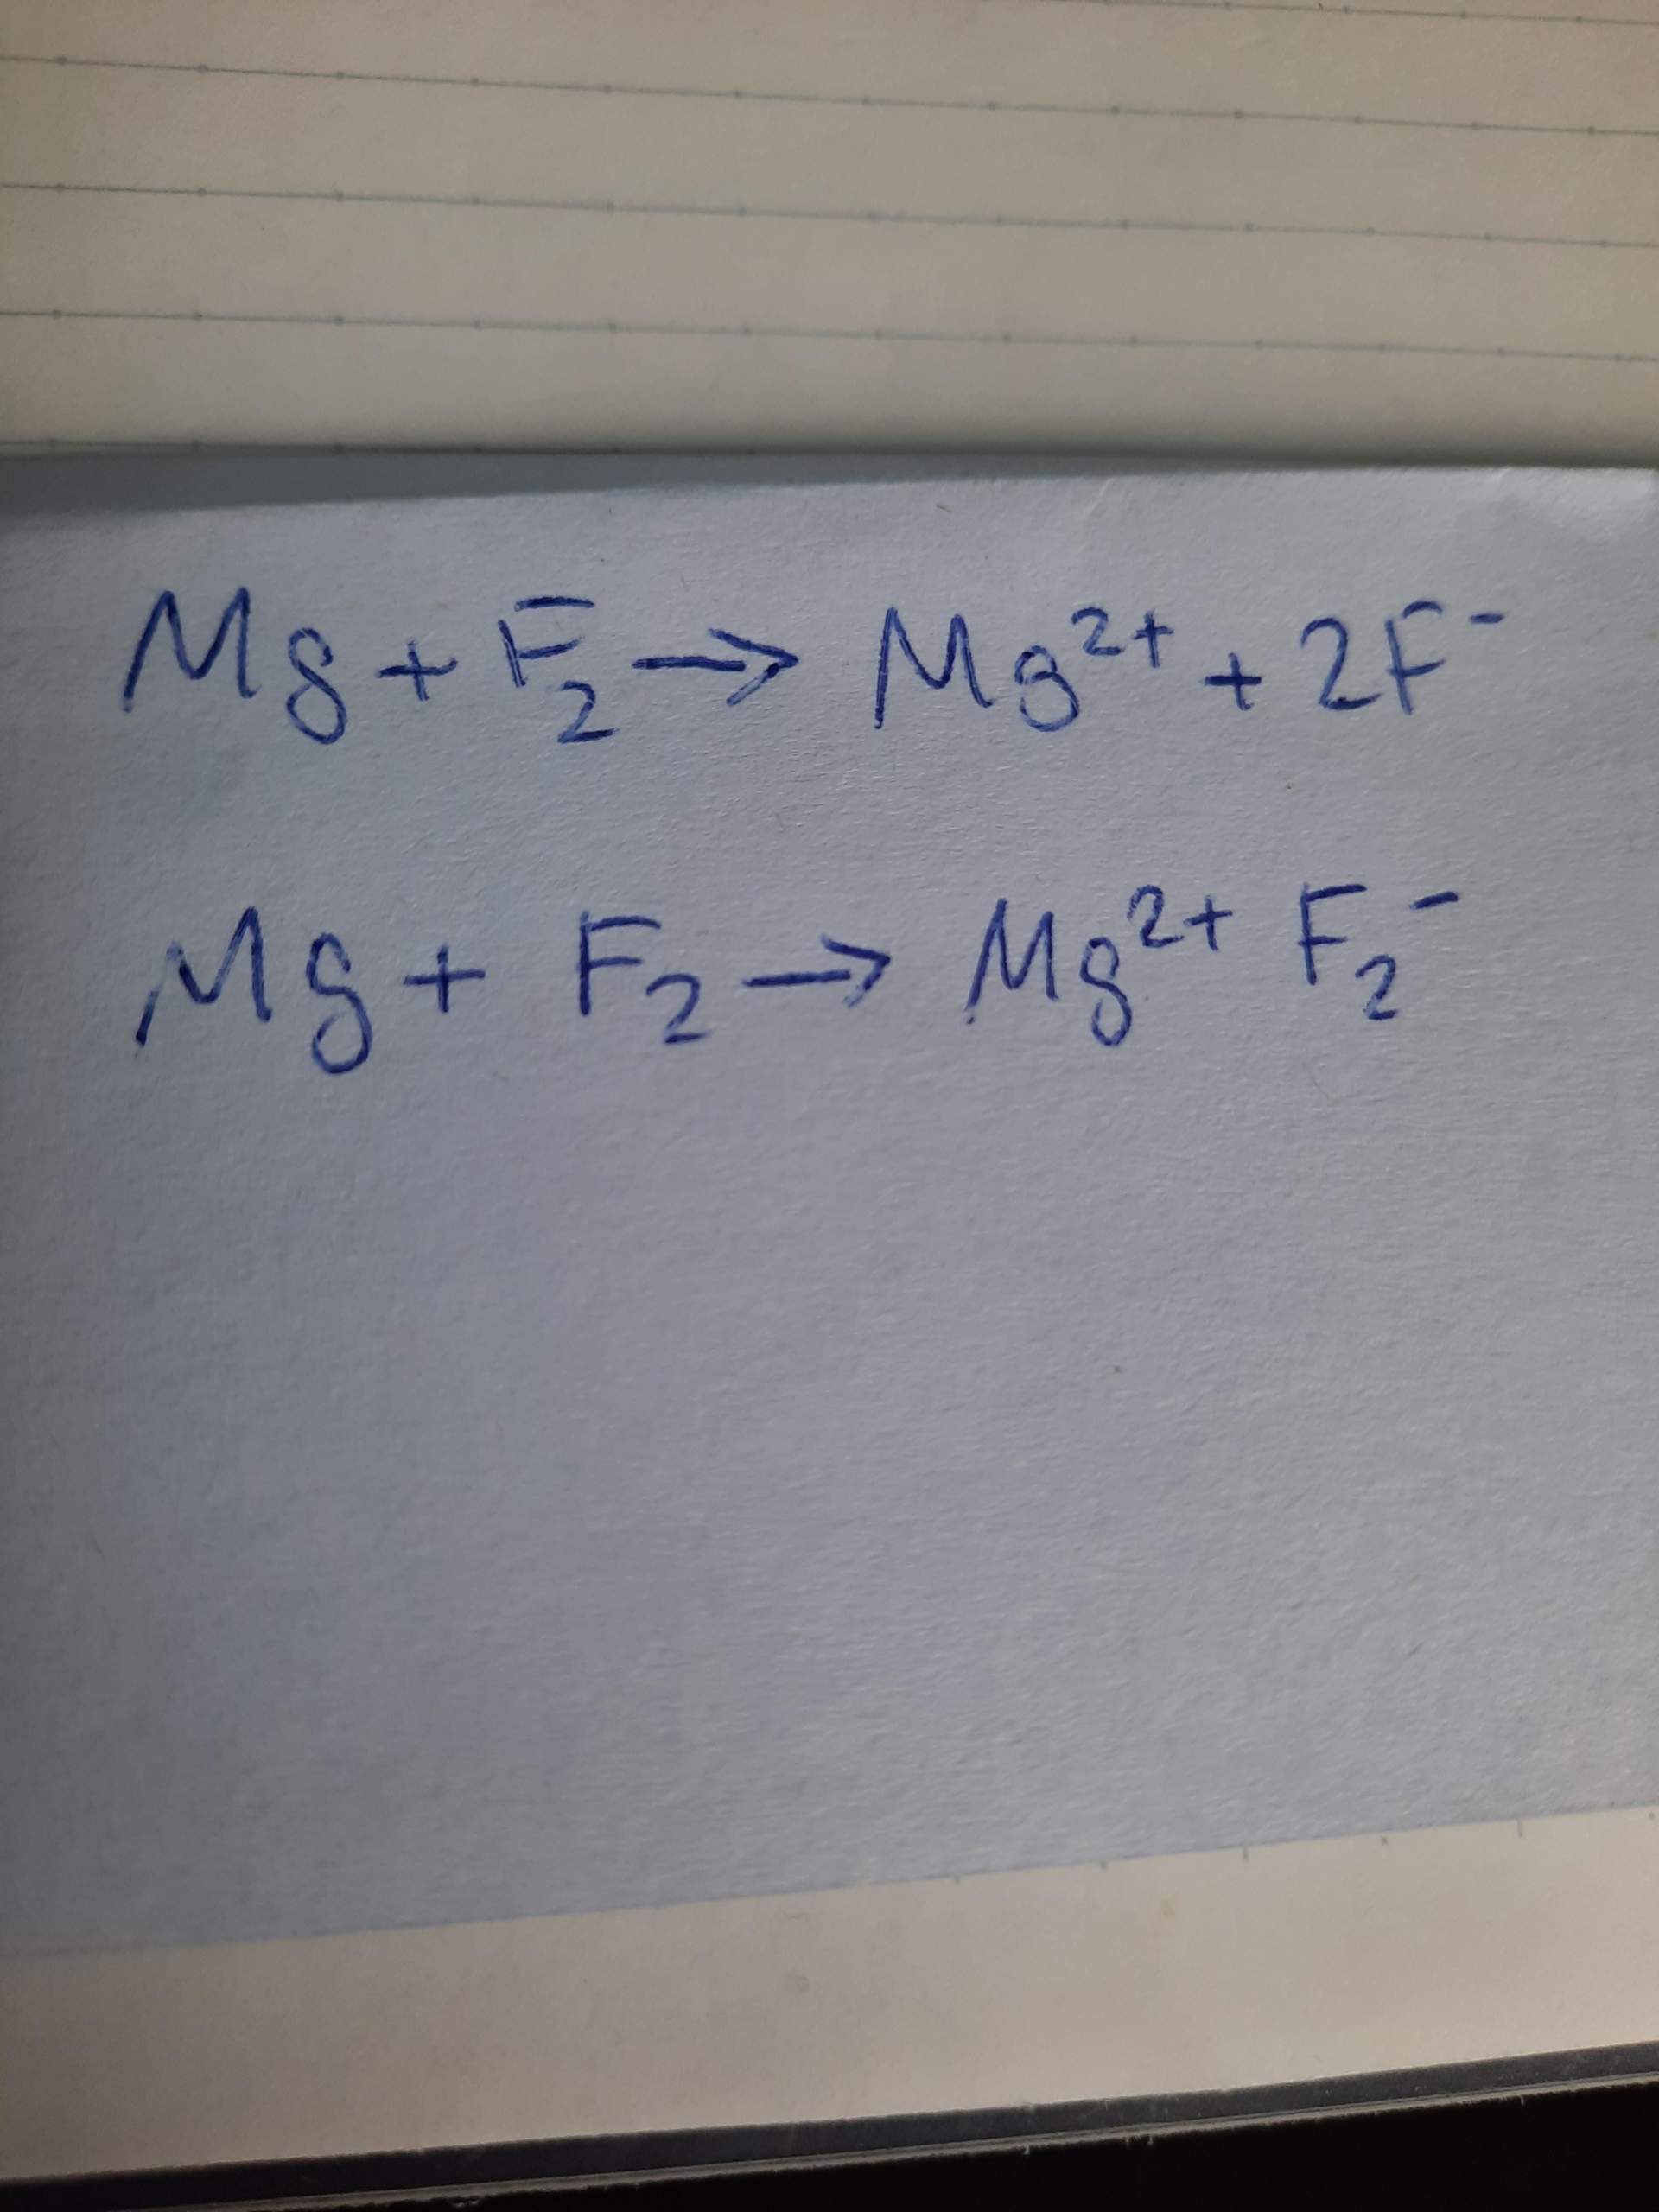 Mg + F₂ → Mg²⁺ + 2F⁻
Mg + F₂ → Mg²⁺ F₂⁻